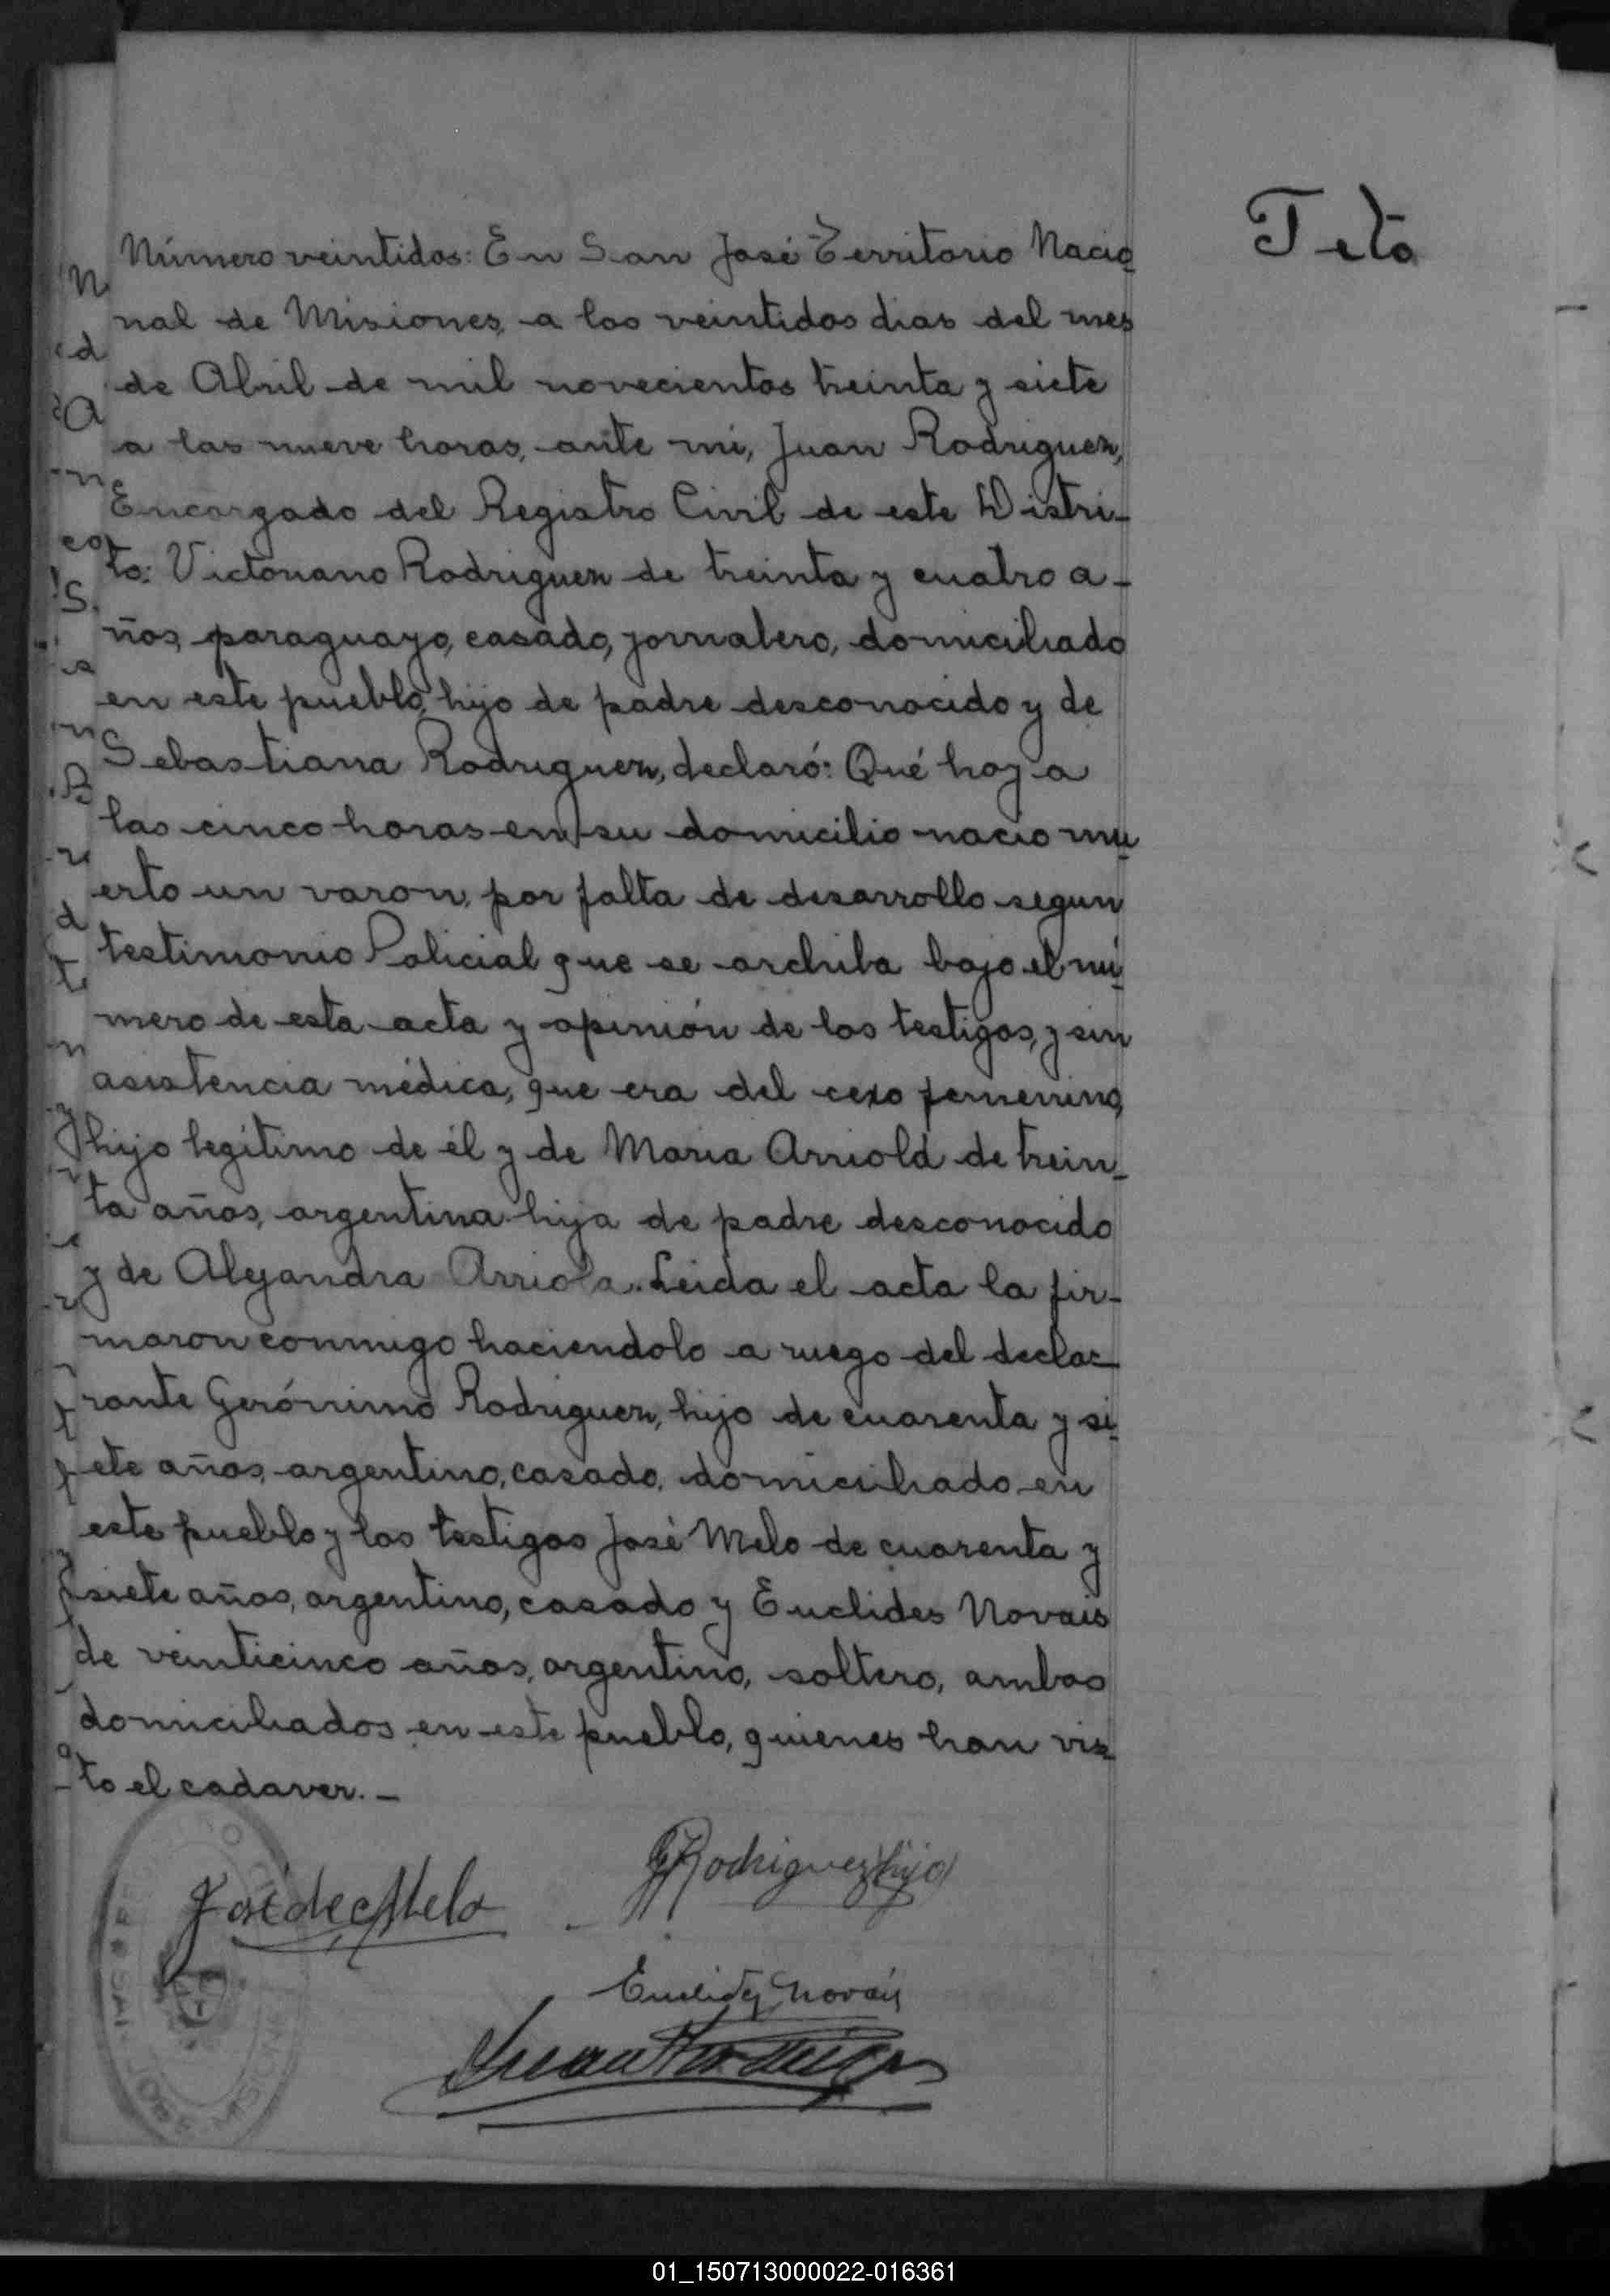 Feto
Número veintidos: En San José Territorio Nacio
nal de Misiones, a los veintidos dias del mes
de Abril de mil novecientos treinta y siete
a las nueve horas, ante mi, Juan Rodriguez,
Encargado del Registro Civil de este Distri-
to: Victoriano Rodriguez de treinta y cuatro a-
ños, paraguayo, casado, jornalero, domiciliado
en este pueblo, hijo de padre desconocido y de
Sebastiana Rodriguez, declaró: Qué hoy a
las cinco horas en su domicilio nacio mu
erto un varon, por falta de desarrollo segun
testimonio Policial que se archiba bajo el nú
mero de esta acta y opinión de los testigos, y sin
asistencia médica, que era del cexo femenino,
hijo legítimo de él y de Maria Arriola de trein-
ta años, argentina hija de padre desconocido
y de Alejandra Arriola. Leida el acta la fir-
maron conmigo haciendolo a ruego del decla-
rante Gerónimo Rodriguez, hijo de cuarenta y si
ete años, argentino, casado, domiciliado en
este pueblo y los testigos José Melo de cuarenta y
siete años, argentino, casado y Euclides Novais
de veinticinco años, argentino, soltero, ambos
domiciliados en este pueblo, quienes han vis
to el cadaver. -
G Rodriguez (hijo)
José de Melo
Euclides Novais
Juan Rodriguez
01_150713000022-016361